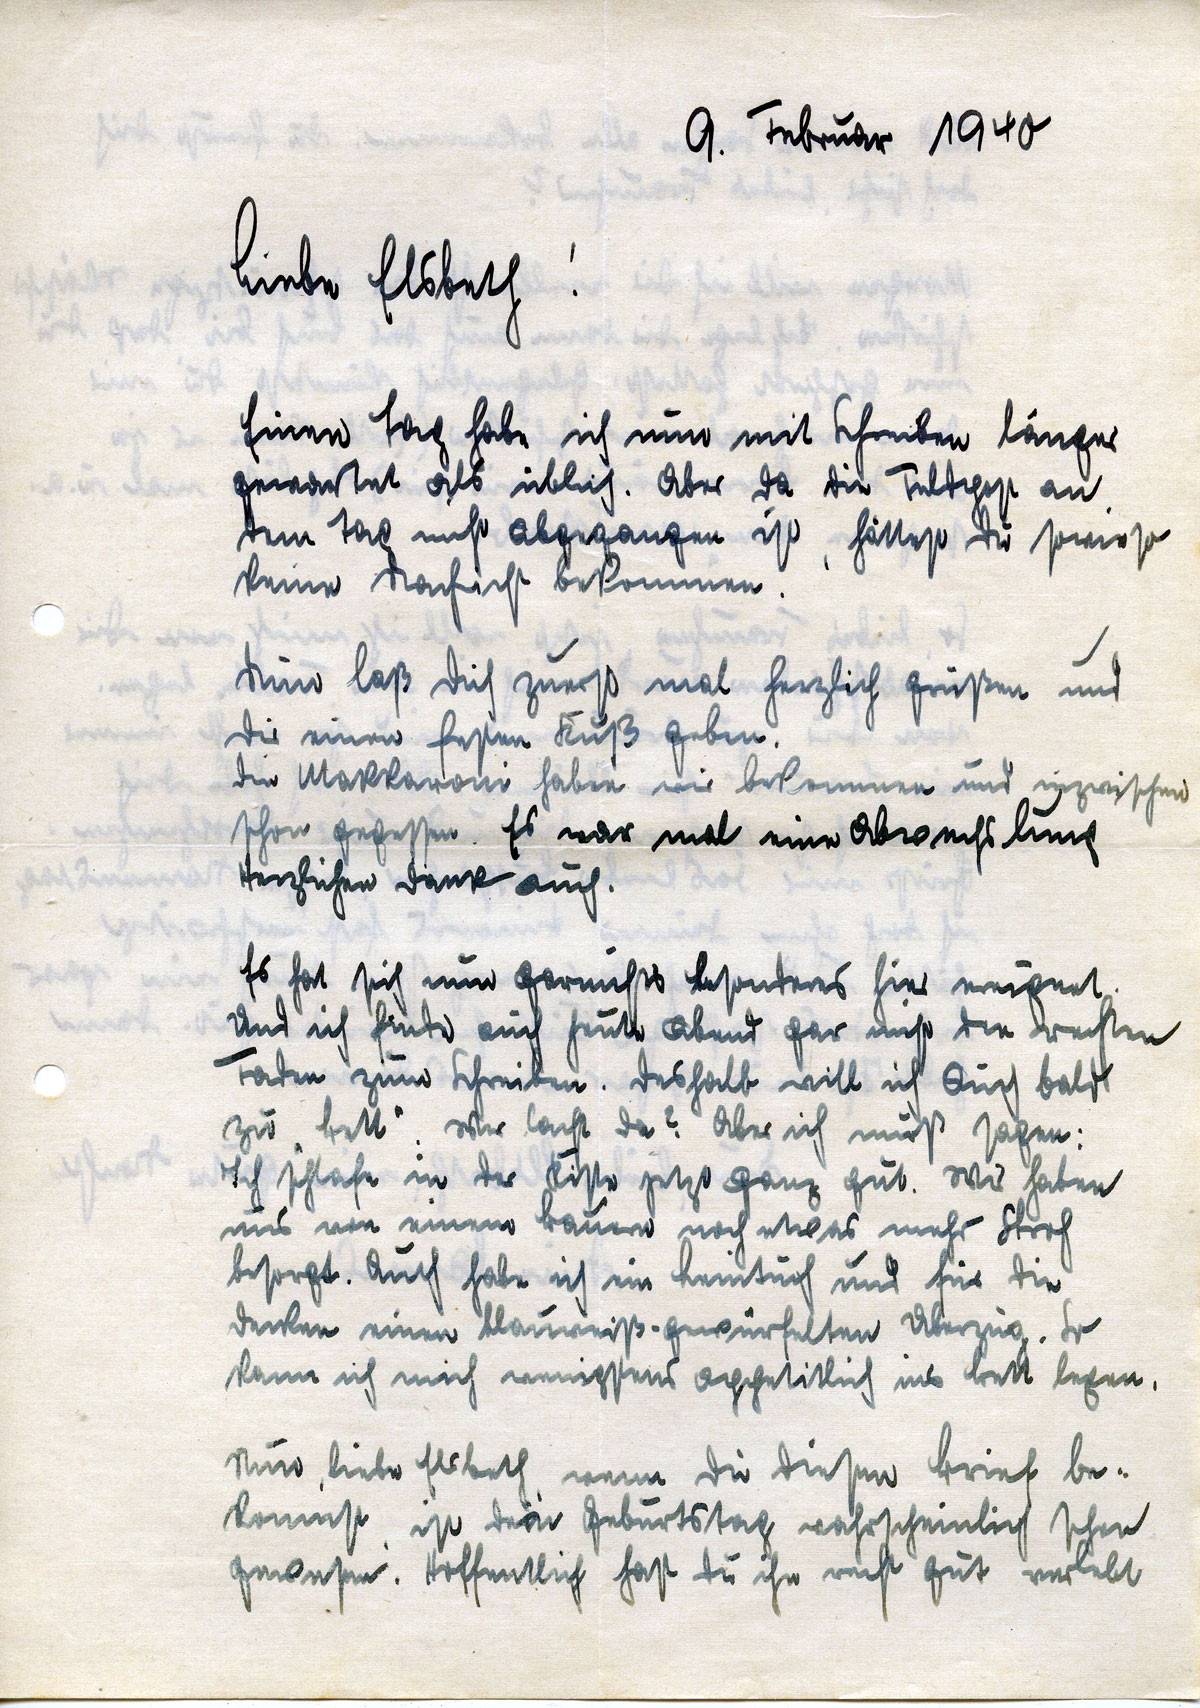 9. Februar 1940
Liebe Elsbeth!
Einen Tag habe ich nun mit Schreiben länger
gewartet als üblich. Aber da die Feldpost an
dem Tag nicht abgegangen ist, hättest Du sowieso
keine Nachricht bekommen.
Nun laß Dich zuerst mal herzlich grüßen und
Dir einen festen Kuß geben.
Die Makkaroni haben wir bekommen und inzwischen
schon gegessen. Es war mal eine Abwechslung
Herzlichen Dank auch.
Es hat sich nun garnichts besonderes hier ereignet.
Und ich finde auch heute Abend gar nicht den rechten
Faden zum Schreiben. Deshalb will ich auch bald
zu „Bett“. Wer lacht da? Aber ich muß sagen:
Ich schlafe in der Kiste jetzt ganz gut. Wir haben
uns von einem Bauern noch etwas mehr Stroh
besorgt. Auch habe ich ein Leintuch und für die
Decken einen blauweiß-gewürfelten Überzug. So
kann ich mich wenigstens appetitlich ins Bett legen.
Nun, liebe Elsbeth, wenn Du diesen Brief be-
kommst, ist dein Geburtstag wahrscheinlich schon
gewesen. Hoffentlich hast Du ihn recht gut verlebt